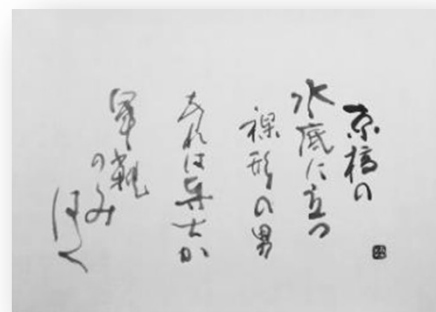 京橋の
水底に立つ
裸形の男
あれは兵士か
軍靴
のみ
はく